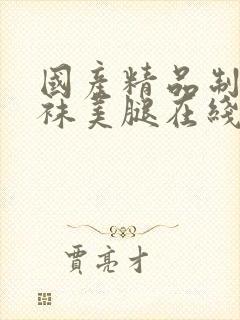 國產精品制
袜美腿在綫
賈亮才